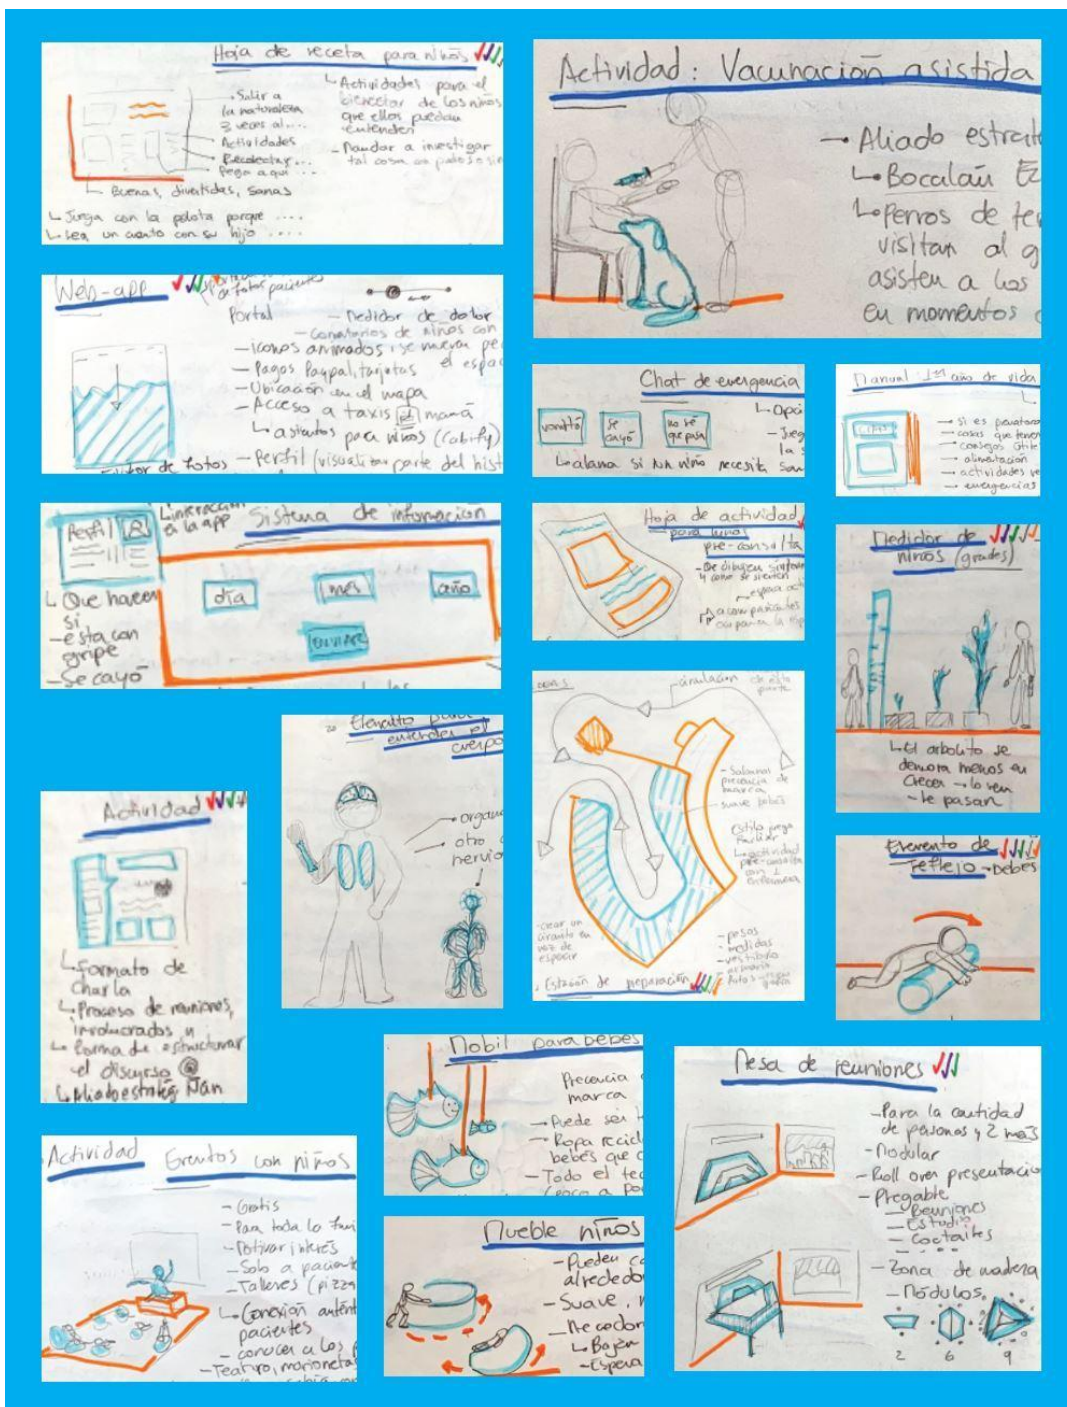 Hoja de receta para niños
Salir a
la naturaleza
3 veces al....
Actividades
Recolectar...
Pega aquí...
Buenas, divertidas, sanas
Juega con la pelota porque ....
Lea un cuento con su hijo ....
Actividades para el
bienestar de los niños
que ellos puedan
entender
Mandar a investigar
tal cosa
Actividad: Vacunación asistida
Aliado estrat
Bocalán
Perros de ter
visitan al g
asisten a los
en momentos
Web-app
de fotos pacientes
Portal
- Medidor de dolor
- Comentarios de niños con
- Iconos animados, se mueva
el espac
- Pagos Paypal, tarjetas
- Ubicación en el mapa
- Acceso a taxis mamá
asientos para niños (cabify)
- Perfil (visualizar parte del hist
de fotos
Chat de emergencia
vomitó
se cayó
no sé que pasa
Opc
alarma si un niño necesita
Manual: 1er año de vida
si es
cosas que tener
consejos útile
alimentación
actividades
emergencias
Sistema de informacion
Perfil
interacción
a la app
Que hacer
si
- esta con
gripe
- Se cayó
día
mes
año
ENVIAR
Hoja de actividad
para
pre-consulta
- Que dibujen síntom
y como se sienten
Medidor de
niños (grades)
El arbolito se
demora menos en
crecer → lo ven
- le pasan
Elemento para
entender el
cuerpo
organ
otro
nervio
circulación
presencia de
marca
suave bebés
Estilo juego
familiar
actividad
pre-consulta
con 1
enfermera
- crear un
circuito en
vez de
espacio
- pesas
- medidas
- vestíbulo
armario
Estación de preparación
Elemento de
reflejo → bebés
Actividad
Formato de
charla
Proceso de reuniones,
involucrados y
forma de estructurar
el discurso @
Aliado estratég. Nan
Mobil para bebes
Precencia
marca
- Puede ser
- Ropa recicl
bebés que
- Todo el te
Mesa de reuniones
- Para la cantidad
de personas y 2 más
- Modular
- Roll over presentació
- Plegable
- Reuniones
- Estudio
- Coctailes
- Zona de madera
- Módulos
2 6 9
Actividad Eventos con niños
- Gratis
- Para toda la fami
- Motivar interés
- Solo a paciente
- Talleres (pizza
Conexión autént
pacientes
- conocer a los
- Teatro, marioneta
Mueble niños
- Pueden
alrededo
- Suave,
- Mecedor
Bajar
- Espera